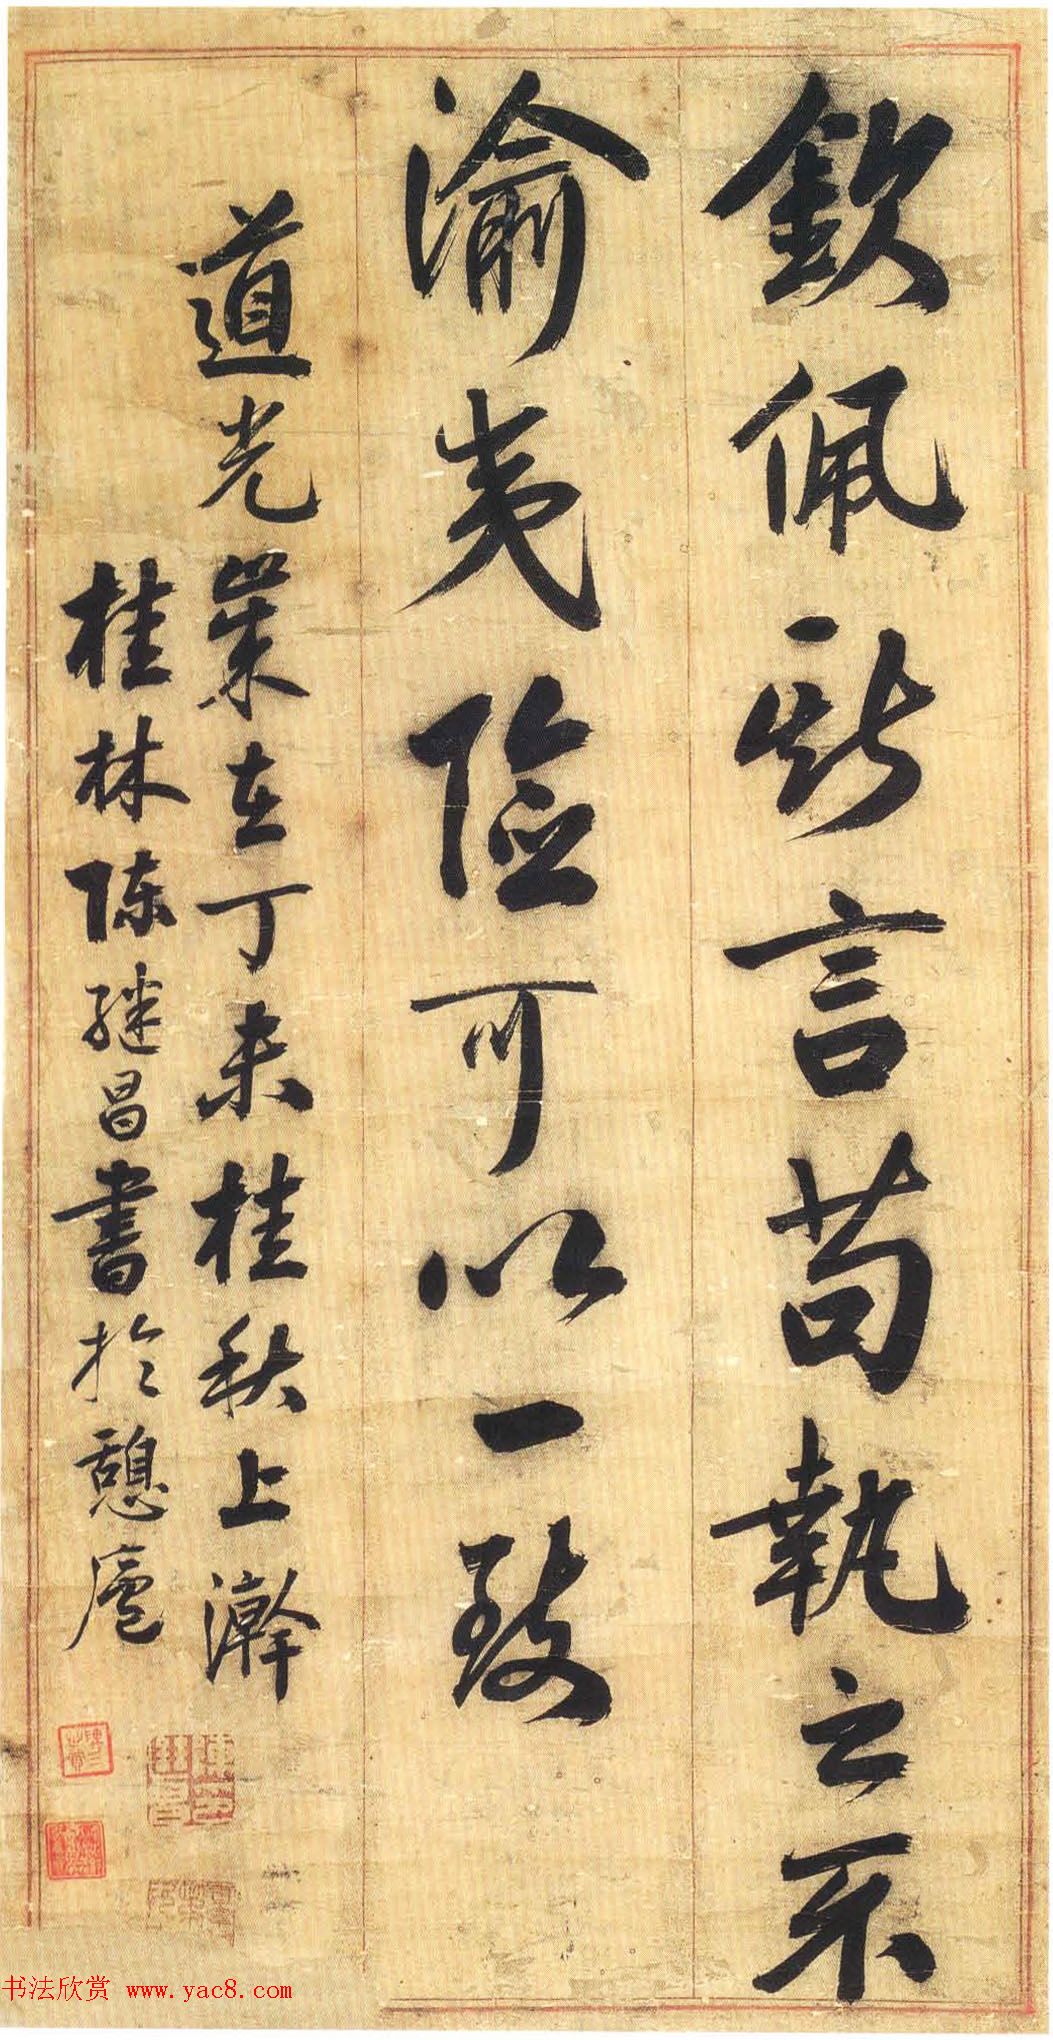 欽佩斯言苟執之不
渝夷險可以一致
道光歲在丁未桂秋上澣
桂林陳繼昌書於憩廬
书法欣赏 www.yac8.com